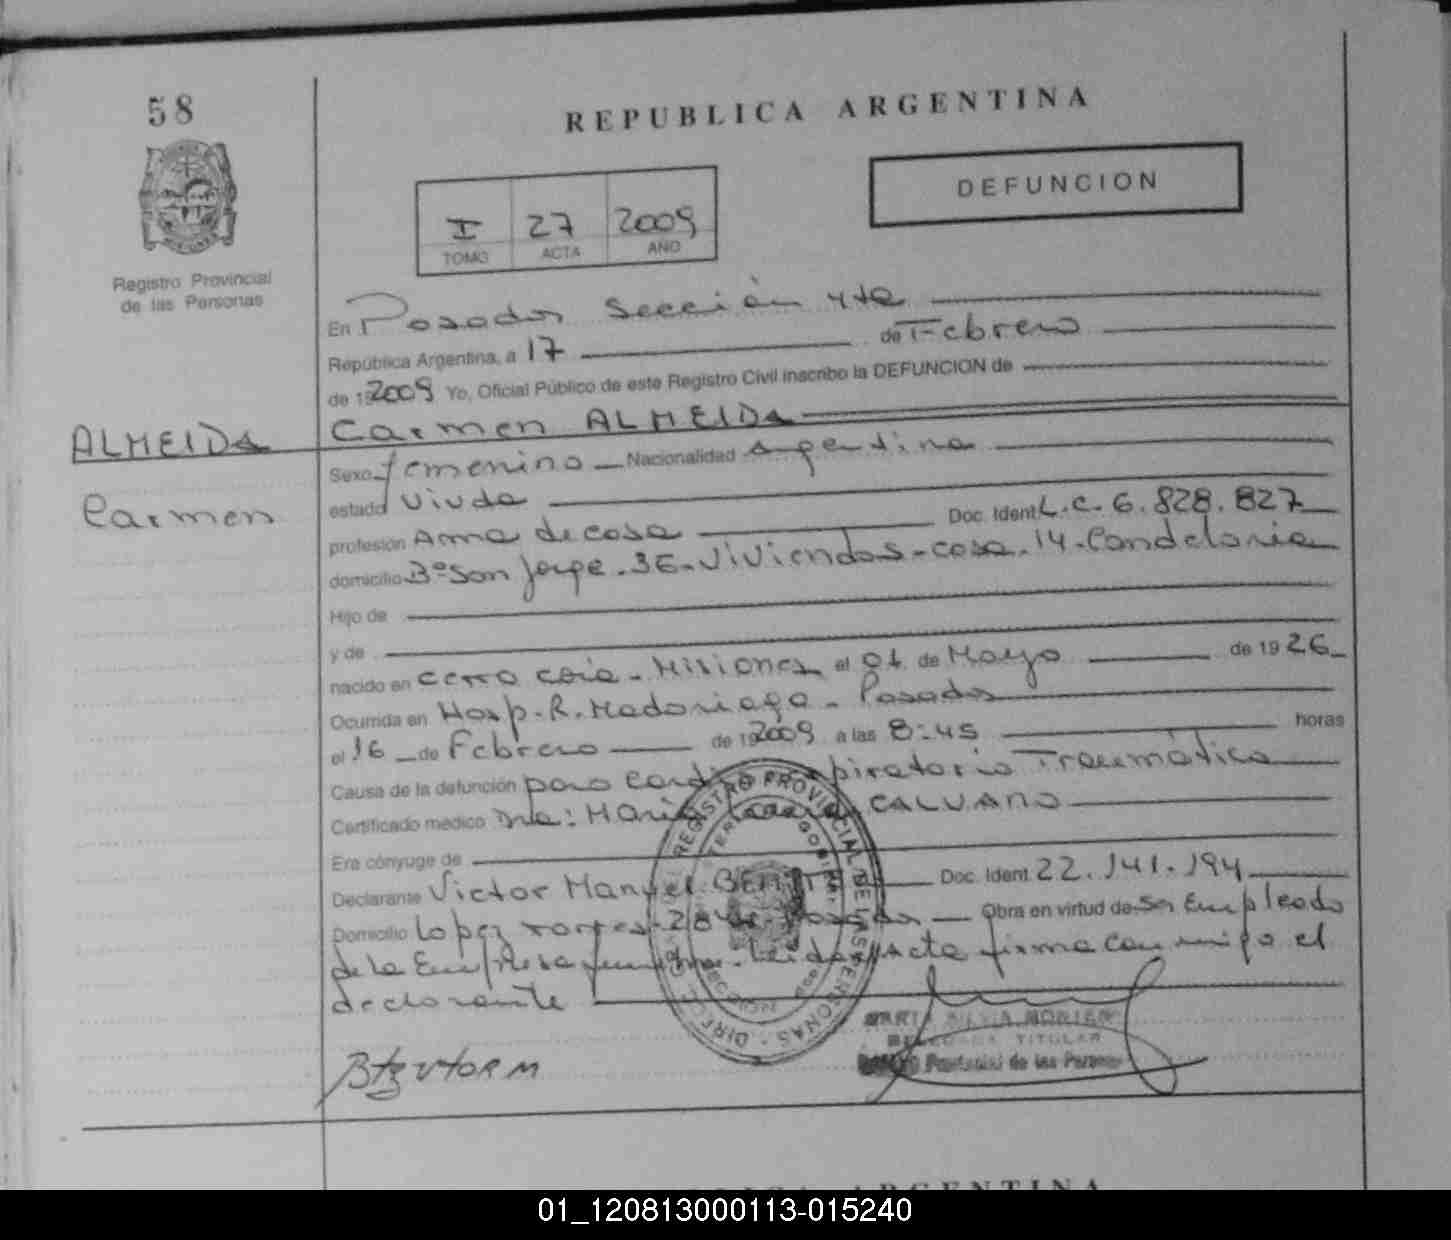 58
REPUBLICA ARGENTINA
DEFUNCION
I 27 2009
TOMO ACTA AÑO
Registro Provincial
de las Personas
En Posadas Sección 4ta
República Argentina, a 17 de Febrero
de 19 2009 Yo, Oficial Público de este Registro Civil inscribo la DEFUNCION de
ALMEIDA Carmen ALMEIDA
Sexo femenino Nacionalidad Argentina
Carmen
estado Viuda
profesión Ama de casa Doc. Ident L.C. 6.828.827
domicilio Bº San Jorge - 36 - Viviendas - casa - 14 - Candelaria
Hijo de
y de
nacido en Cerro Corá - Misiones el 01 de Mayo de 1926
Ocurrida en Hosp. R. Madariaga - Posadas
el 16 de Febrero de 19 2009 a las 8:45 horas
Causa de la defunción paro cardio respiratorio Traumático
Certificado médico Dra: María CALVANO
Era cónyuge de
Declarante Victor Manuel Doc. Ident 22.141.194
Domicilio Lopez Torres Posadas Obra en virtud de ser Empleado
de la Empresa funebre. Leida el Acta firma conmigo el
declarante
REGISTRO PROVINCIAL DE LAS PERSONAS - DIREC
Btz Vtor M
TITULAR
Provincial de las Personas
REPUBLICA ARGENTINA
01_120813000113-015240